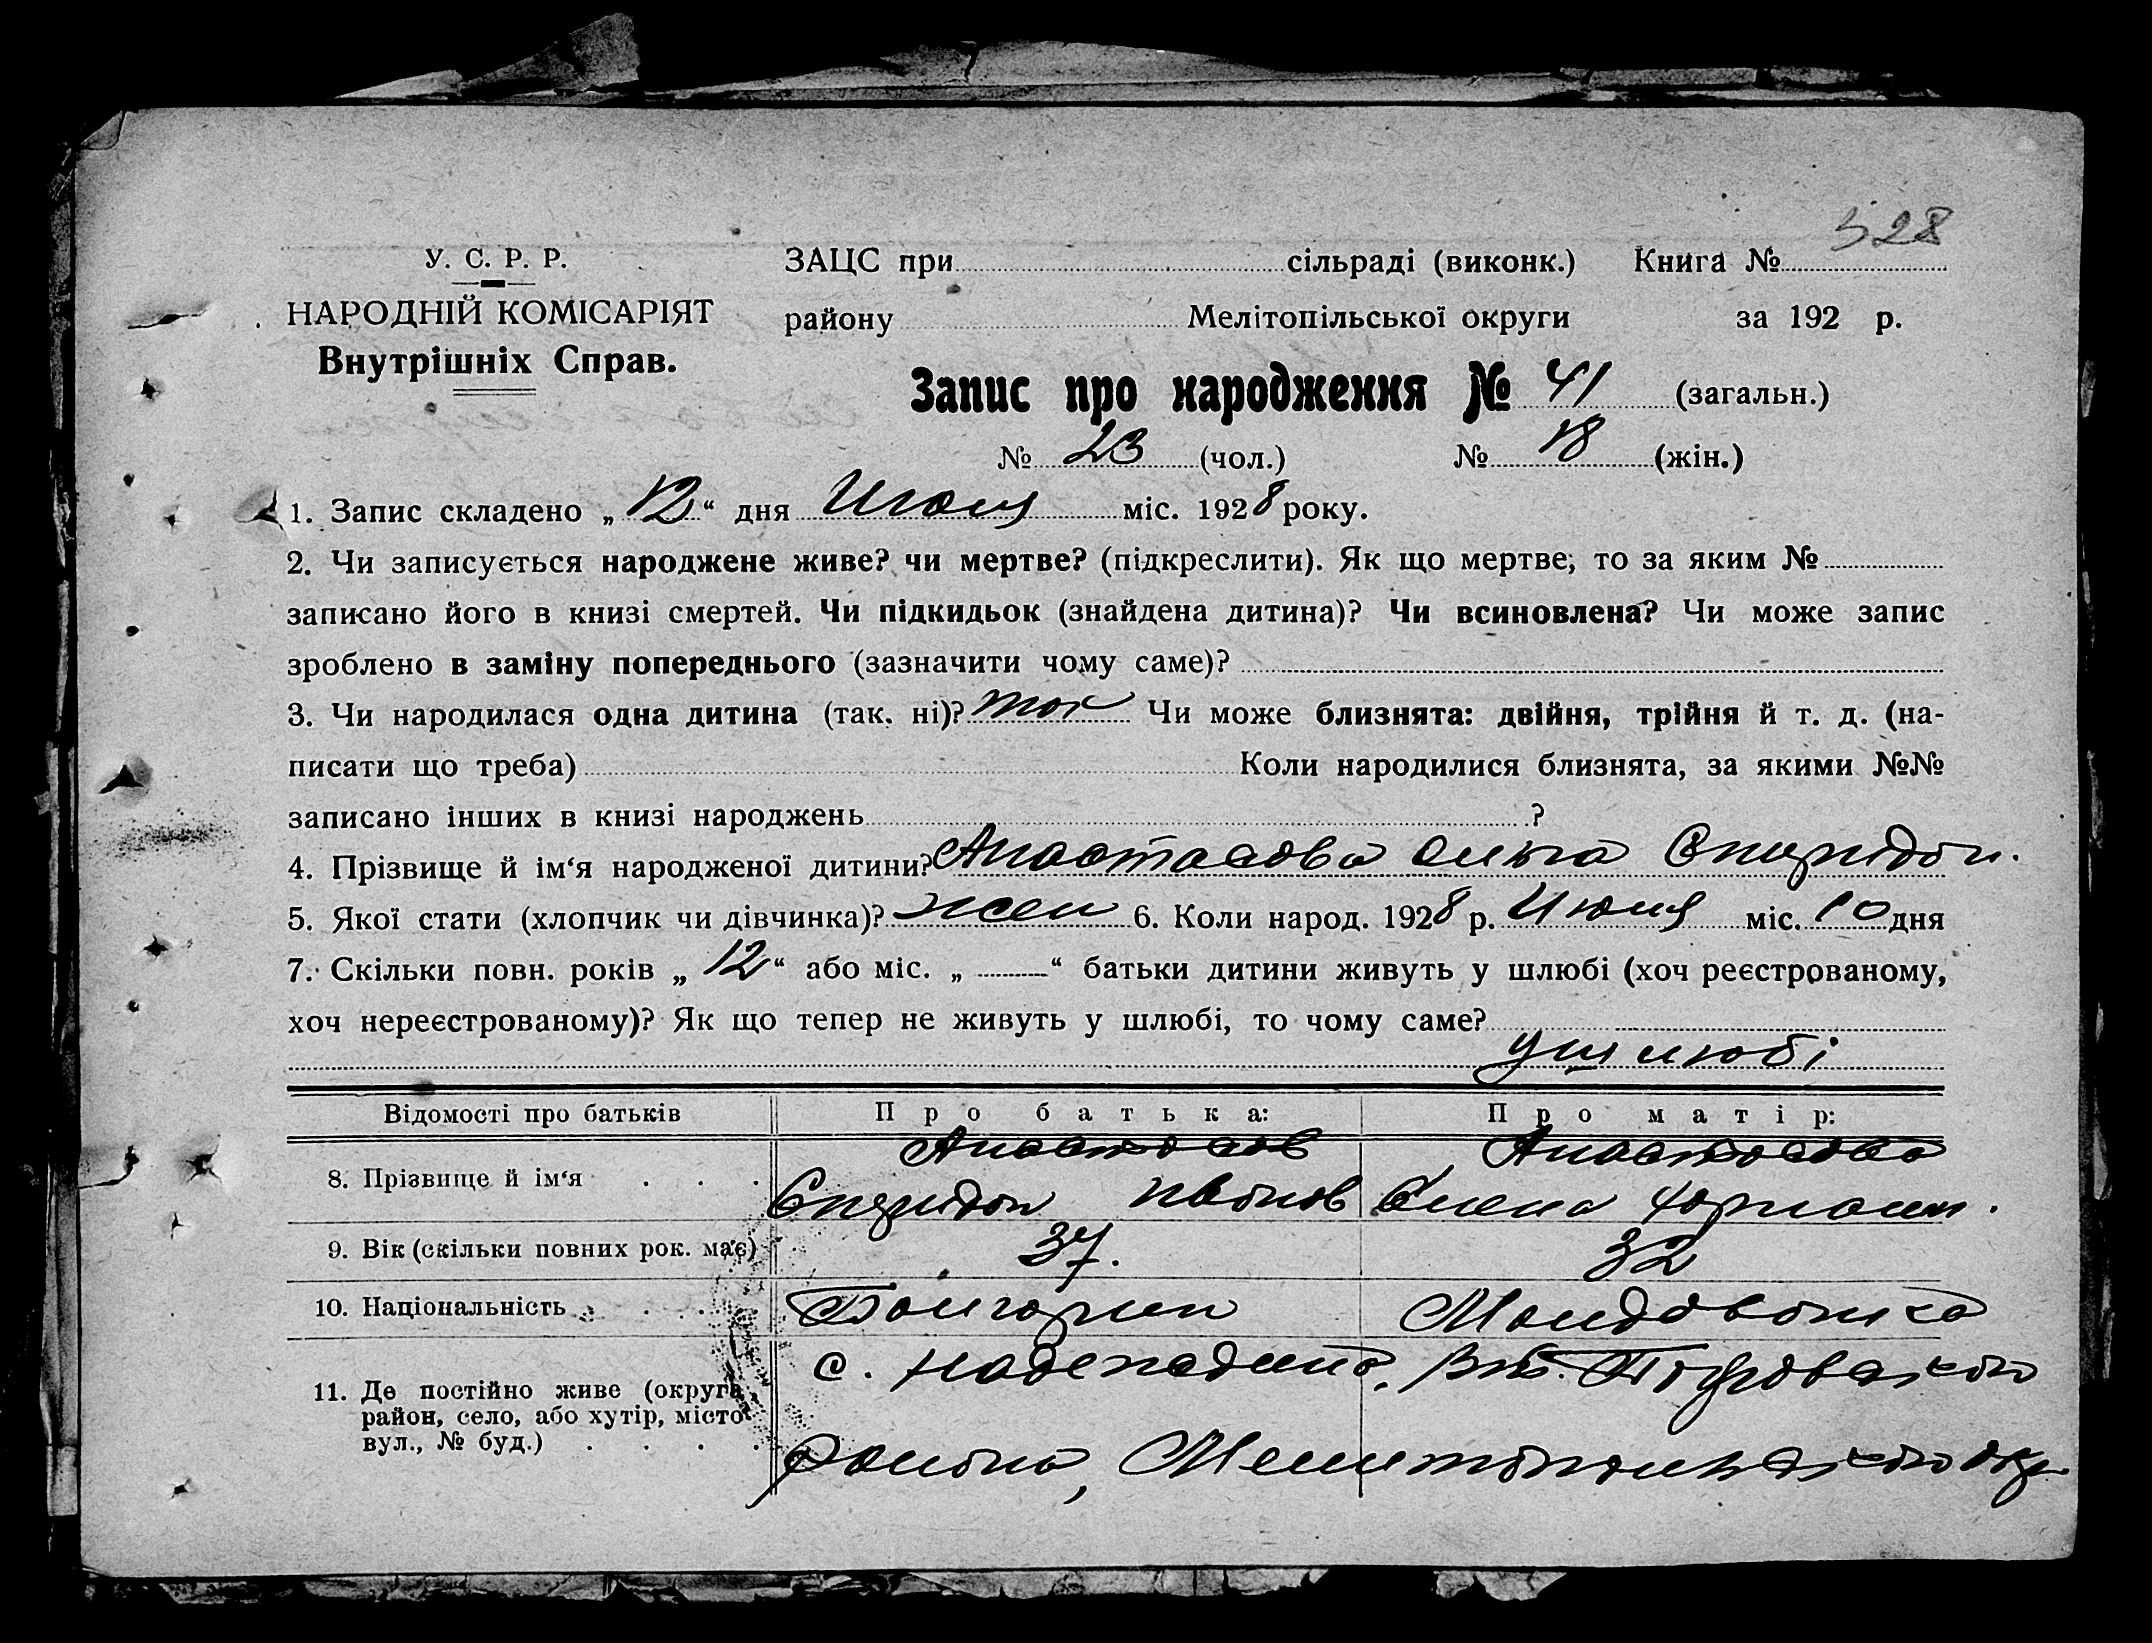 528
У. С. Р. Р.
НАРОДНІЙ КОМІСАРІЯТ
Внутрішніх Справ.
ЗАЦС при сільраді (виконк.) Книга №
району Мелітопільської округи за 192 р.
Запис про народження № 41 (загальн.)
№ 23 (чол.) № 18 (жін.)
1. Запис складено „12“ дня Июня міс. 1928 року.
2. Чи записується народжене живе? чи мертве? (підкреслити). Як що мертве, то за яким №
записано його в книзі смертей. Чи підкидьок (знайдена дитина)? Чи всиновлена? Чи може запис
зроблено в заміну попереднього (зазначити чому саме)?
3. Чи народилася одна дитина (так. ні)? так Чи може близнята: двійня, трійня й т. д. (на-
писати що треба) Коли народилися близнята, за якими №№
записано інших в книзі народжень ?
4. Прізвище й ім‘я народженої дитини? Апостасова Ольга Спиридон.
5. Якої стати (хлопчик чи дівчинка)? жен 6. Коли народ. 1928 р. Июня міс. 10 дня
7. Скільки повн. років „12“ або міс. „ “ батьки дитини живуть у шлюбі (хоч реєстрованому,
хоч нереєстрованому)? Як що тепер не живуть у шлюбі, то чому саме?
у шлюбі
Відомості про батьків Про батька: Про матір:
8. Прізвище й ім‘я . . . Апостасов Апостасова
Спиридон Елена
9. Вік (скільки повних рок. має) 37. 32
10. Національність Болгарин Молдованка
11. Де постійно живе (округа, район, село, або хутір, місто вул., № буд.) с.
района, Мелитопольського окр.